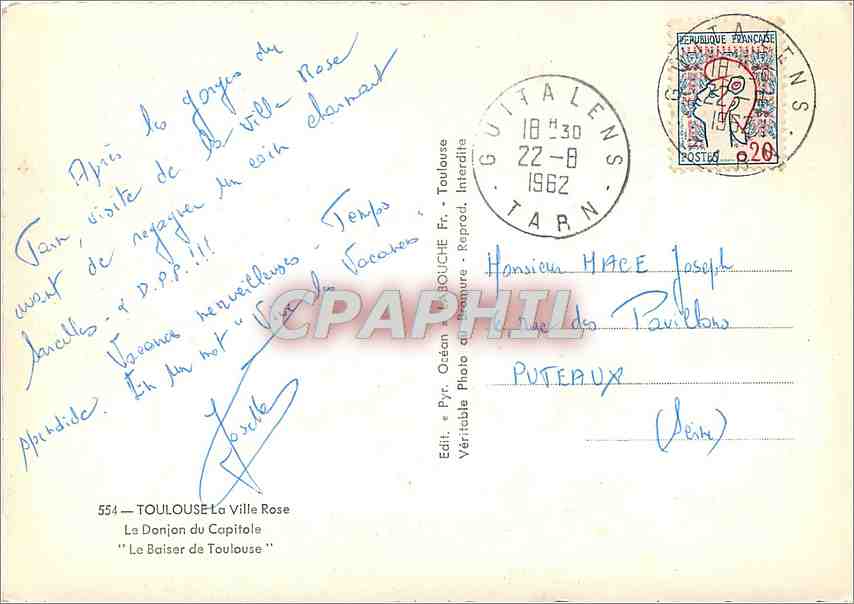 Après les gorges du
Tarn, visite de la Ville Rose
avant de regagner un coin charmant
Sarcelles - D.P.P.!!!
Vacances merveilleuses - Temps
splendide. En un mot "Vive les Vacances"
Josette
554 — TOULOUSE La Ville Rose
Le Donjon du Capitole
"Le Baiser de Toulouse"
Edit. « Pyr. Océan » LABOUCHE Fr. - Toulouse
Véritable Photo au Bromure - Reprod. Interdite
CPAPHIL
GUITALENS
18 H 30
22-8
1962
TARN
RÉPUBLIQUE FRANÇAISE
POSTES 0,20
GUITALENS
18
22-8
1962
Monsieur MACE Joseph
rue des Pavillons
PUTEAUX
(Seine)